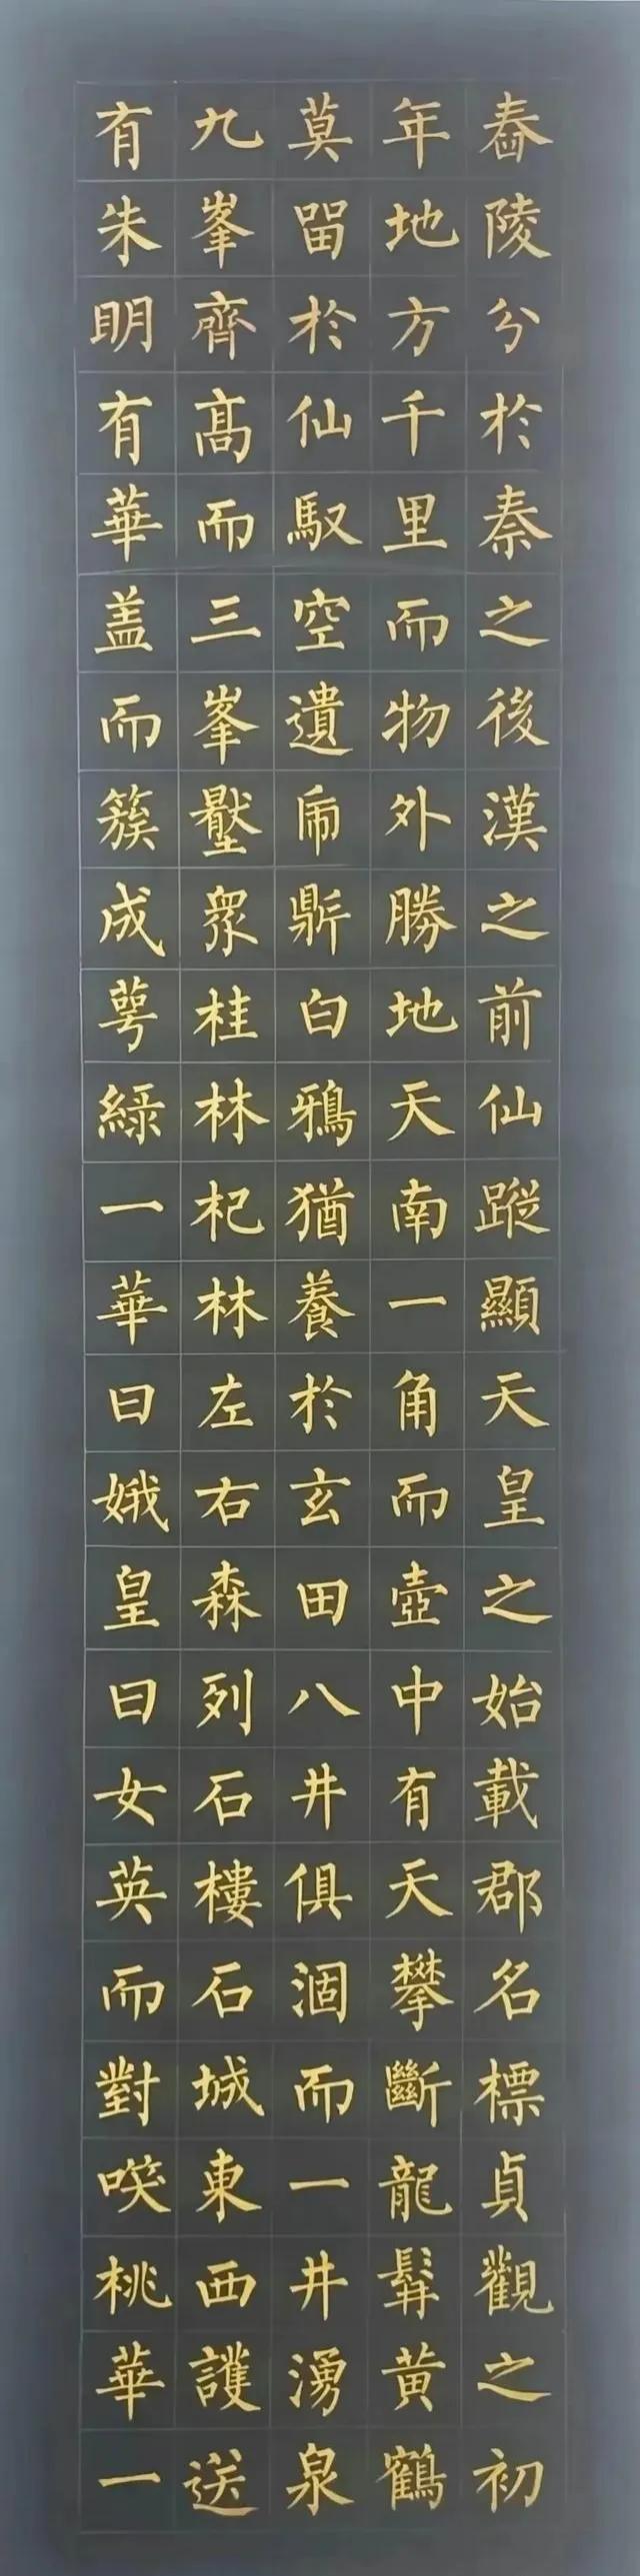 舂陵分於秦之後漢之前仙蹤顯天皇之始載郡名標貞觀之初
年地方千里而物外勝地天南一角而壺中有天攀斷龍髯黄鶴
莫留於仙馭空遺帝鼎白鴉猶養於玄田八井俱涸而一井湧泉
九峯齊高而三峯壓衆桂林杞林左右森列石樓石城東西護送
有朱明有華盖而簇成萼綠一華曰娥皇曰女英而對唉桃華一